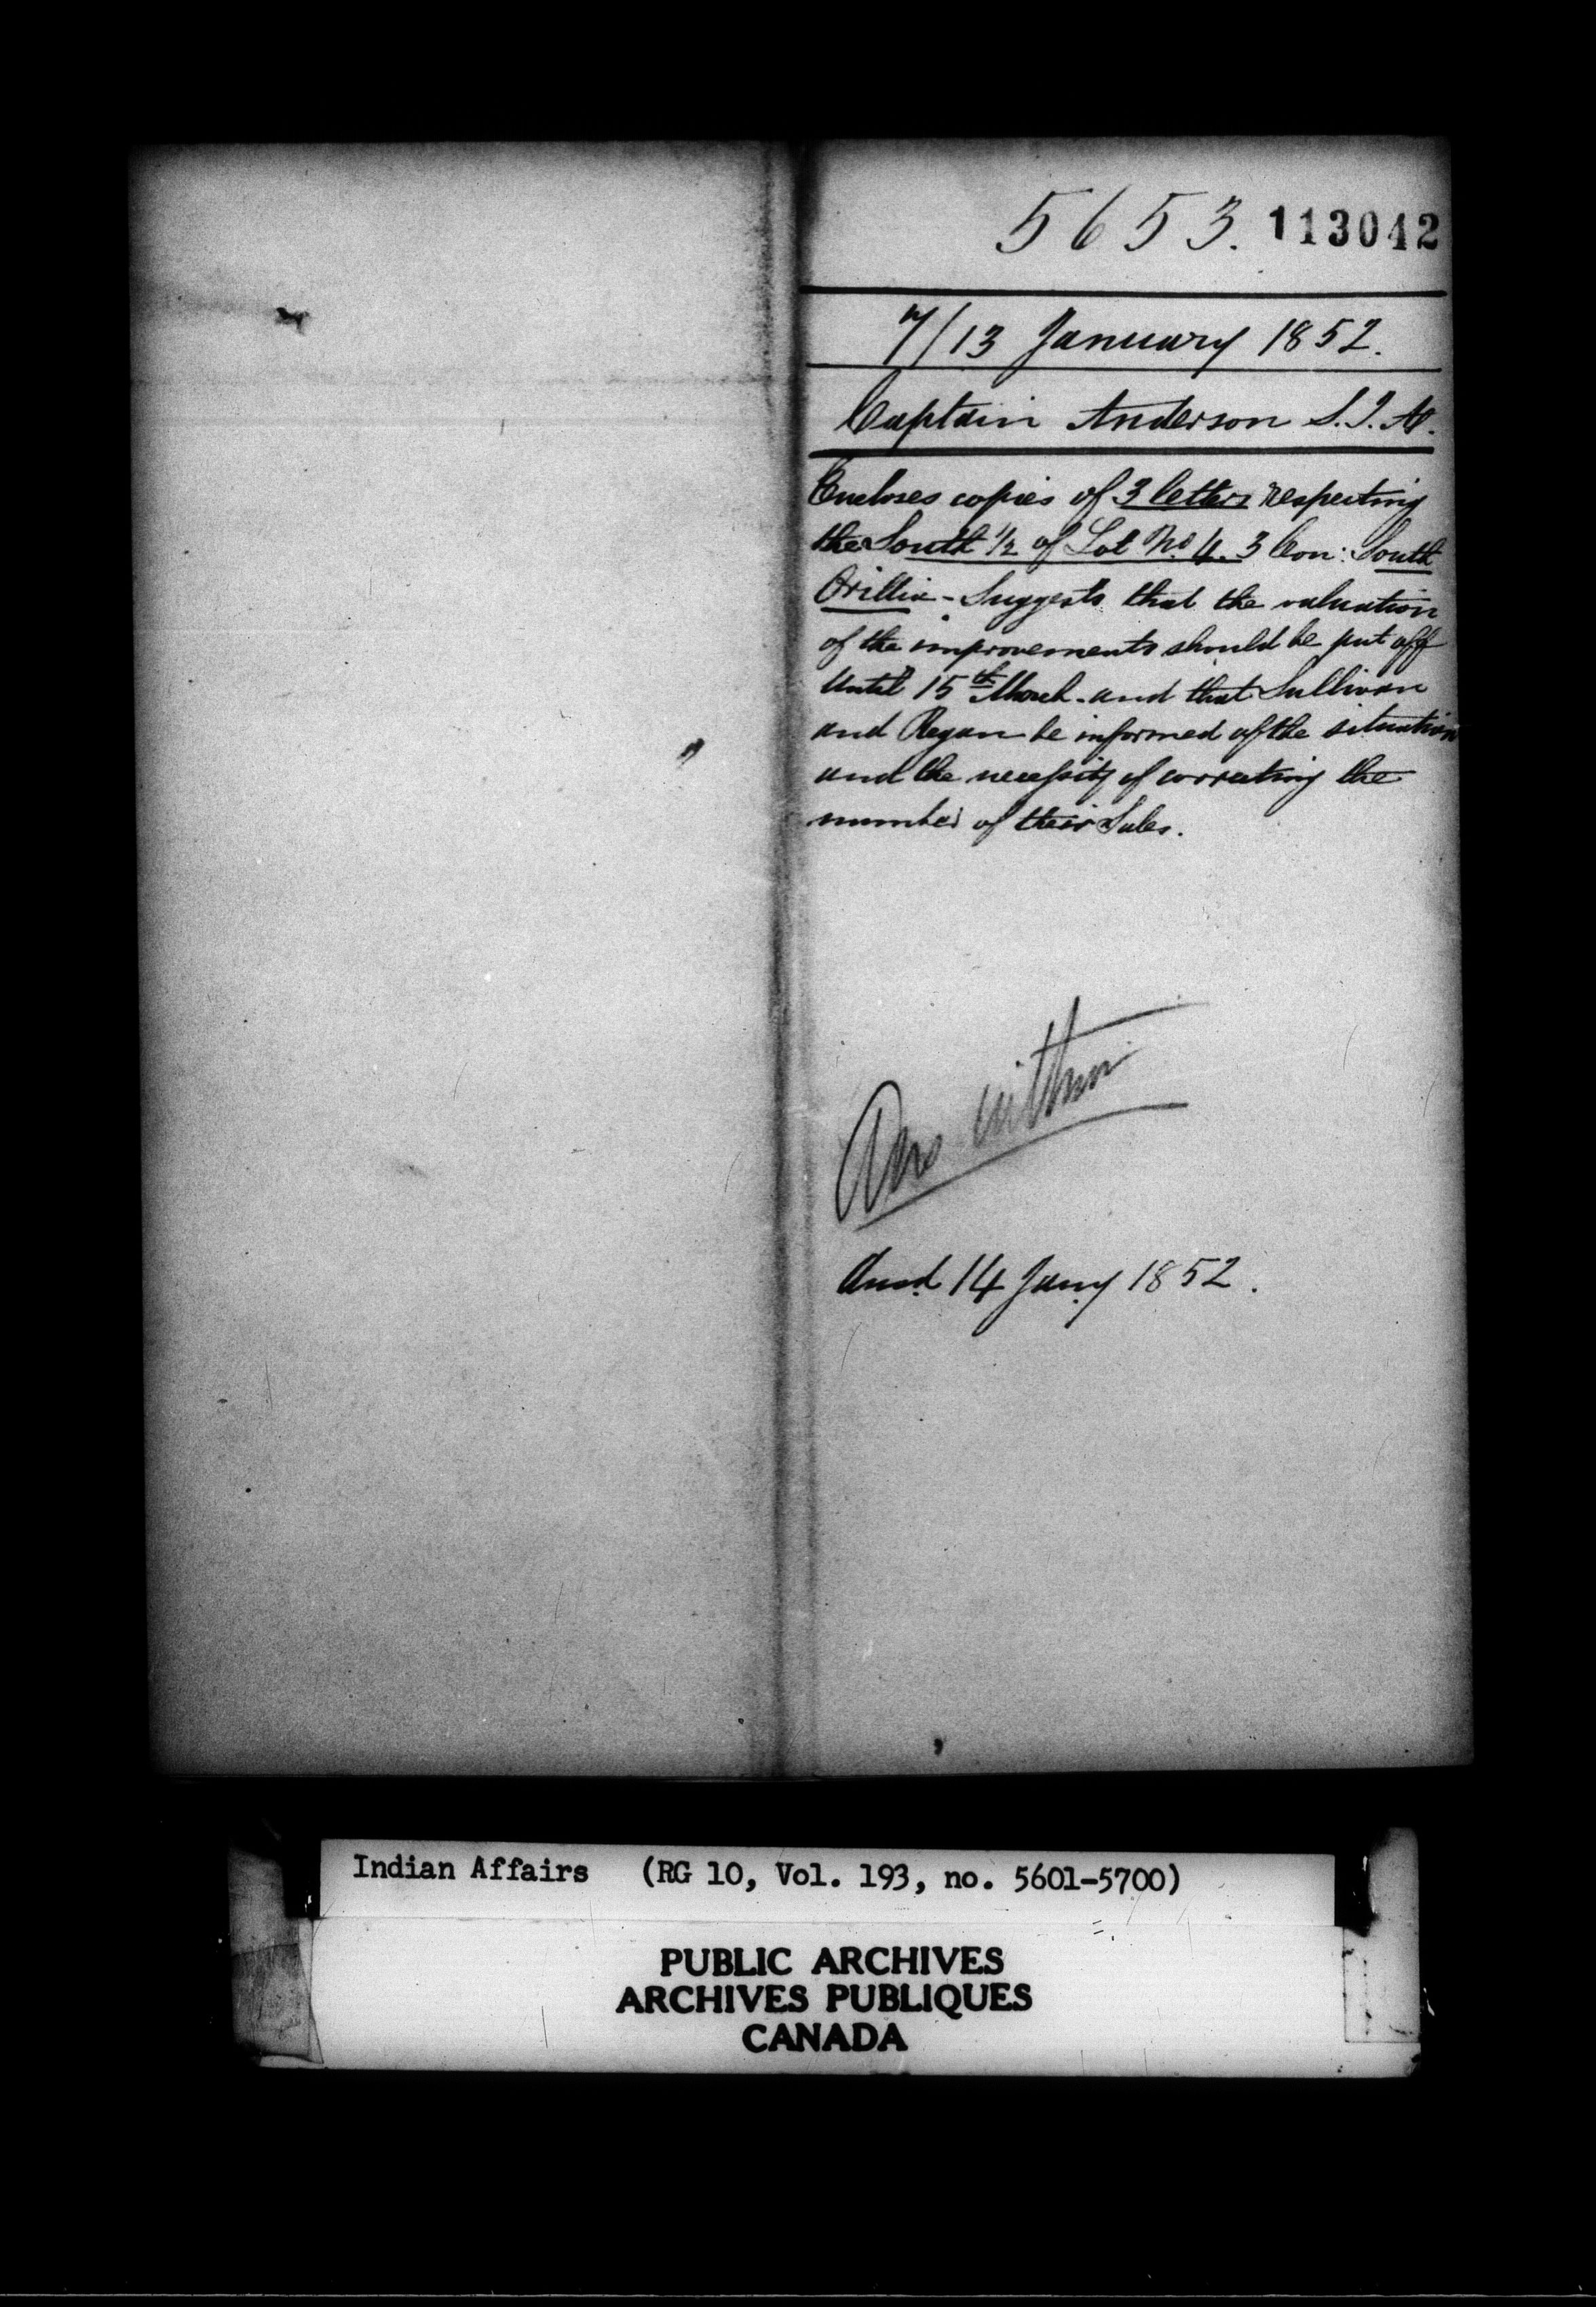 5653. 113042
7/13 January 1852.
Captain Anderson S.I.A.
Encloses copies of 3 letters respecting
the South 1/2 of Lot No. 4. 3 Con: South
Orillia - Suggests that the valuation
of the improvements should be put off
until 15th March - and that Sullivan
and Regan be informed of the situation
and the necessity of correcting the
number of their Sales.
Ans within
Ansd. 14 Jany 1852.
Indian Affairs (RG 10, Vol. 193, no. 5601-5700)
PUBLIC ARCHIVES
ARCHIVES PUBLIQUES
CANADA